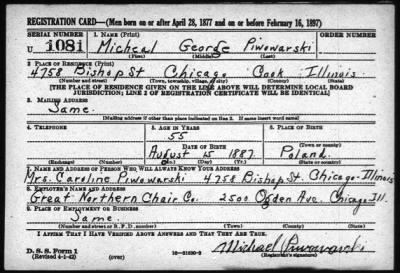 REGISTRATION CARD—(Men born on or after April 28, 1877 and on or before February 16, 1897)
SERIAL NUMBER 1. NAME (Print) ORDER NUMBER
U 1081 Micheal George Piwowarski
(First) (Middle) (Last)
2. PLACE OF RESIDENCE (Print)
4758 Bishop St. Chicago Cook Illinois.
(Number and street) (Town, township, village, or city) (County) (State)
[THE PLACE OF RESIDENCE GIVEN ON THE LINE ABOVE WILL DETERMINE LOCAL BOARD
JURISDICTION; LINE 2 OF REGISTRATION CERTIFICATE WILL BE IDENTICAL]
3. MAILING ADDRESS
Same.
(Mailing address if other than place indicated on line 2. If same insert word same)
4. TELEPHONE 5. AGE IN YEARS 6. PLACE OF BIRTH
55
DATE OF BIRTH (Town or county)
August 15 1887. Poland.
(Exchange) (Number) (Mo.) (Day) (Yr.) (State or country)
7. NAME AND ADDRESS OF PERSON WHO WILL ALWAYS KNOW YOUR ADDRESS
Mrs. Caroline Piwowarski 4758 Bishop St. Chicago-Illinois
8. EMPLOYER'S NAME AND ADDRESS
Great Northern Chair Co. 2500 Ogden Ave. Chicago-Ill.
9. PLACE OF EMPLOYMENT OR BUSINESS
Same.
(Number and street or R. F. D. number) (Town) (County) (State)
I AFFIRM THAT I HAVE VERIFIED ABOVE ANSWERS AND THAT THEY ARE TRUE.
D. S. S. Form 1
(Revised 4-1-42) (over) 16—21630-2 Michael Piwowarski
(Registrant's signature)